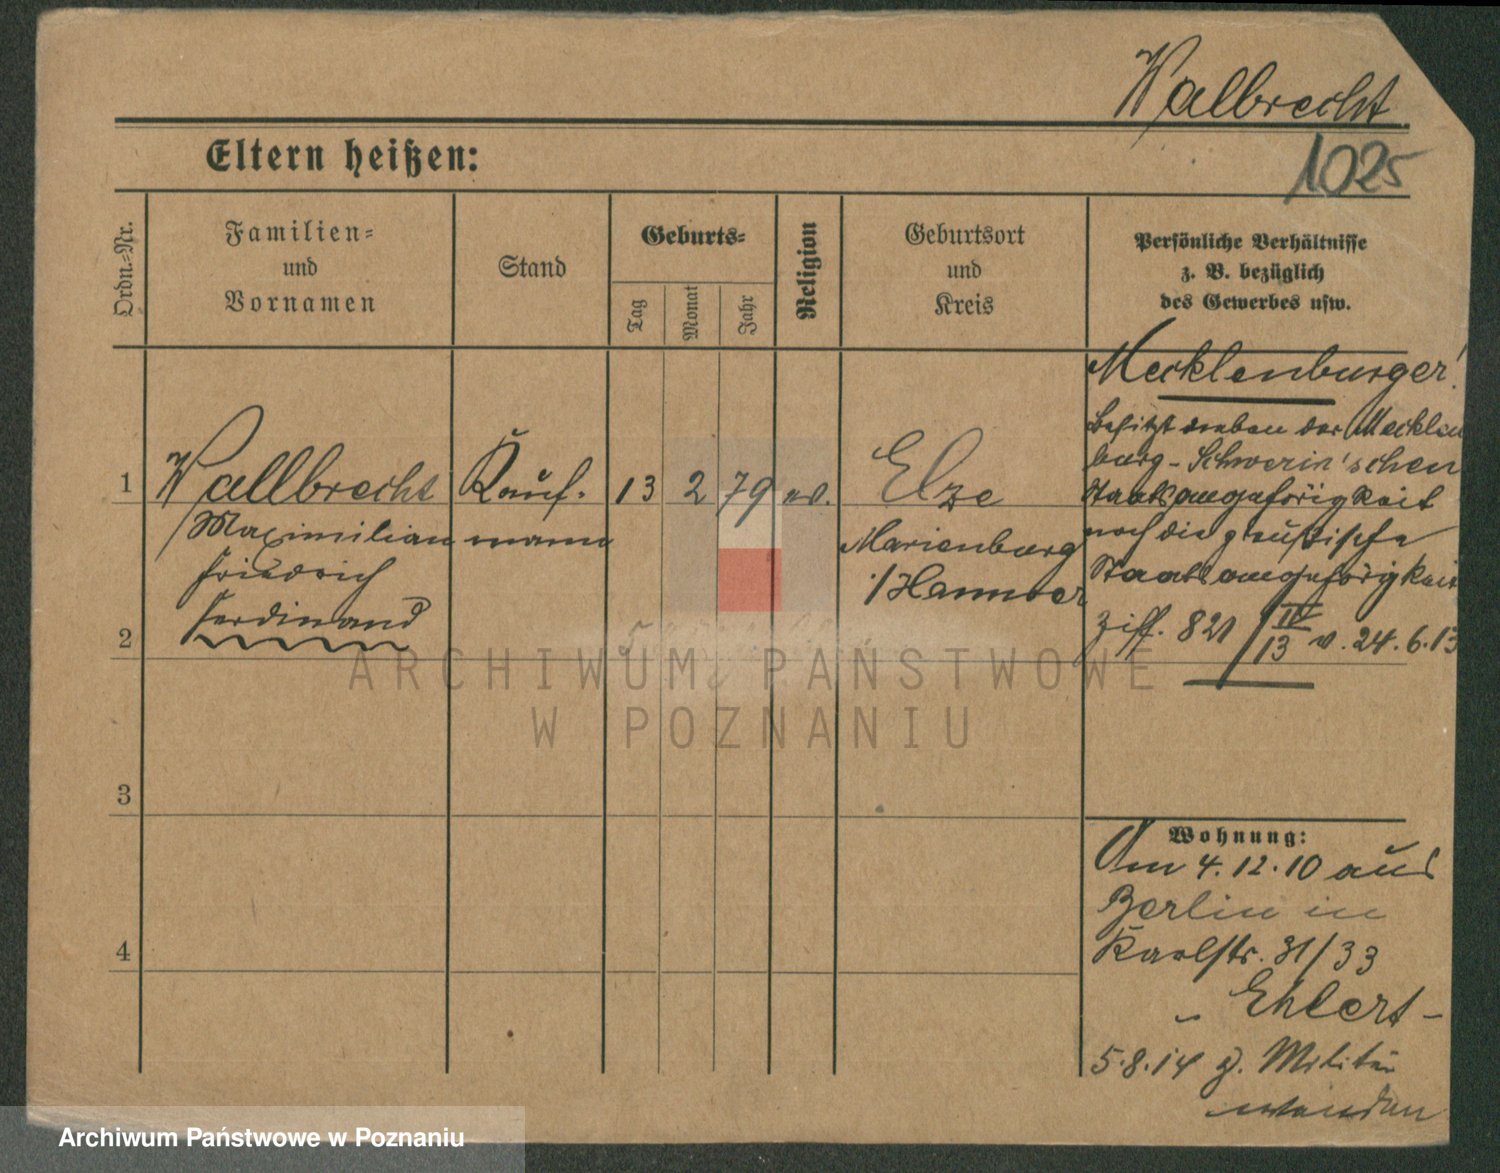 Walbrecht
Eltern heißen:
1025
Ordn.=Nr.
Familien=
und
Vornamen
Stand
Geburts=
Tag
Monat
Jahr
Religion
Geburtsort
und
Kreis
Persönliche Verhältnisse
z. B. bezüglich
des Gewerbes usw.
Mecklenburger!
besitzt neben der Mecklen
burg-Schwerin'schen
Staatsangehörigkeit
noch die preußische
Staatsangehörigkeit
Ziff. 821/IV/13 v. 24.6.13
1 Wallbrecht Kauf- 13 2 79 ev. Elze
Maximilian mann Marienburg
Friedrich i/Hannover
Ferdinand
2
3
4
Wohnung:
Am 4.12.10 aus
Berlin in
Karlstr. 31/33
Ehlert-
5.8.14 z. Militär
ARCHIWUM PAŃSTWOWE
W POZNANIU
Archiwum Państwowe w Poznaniu